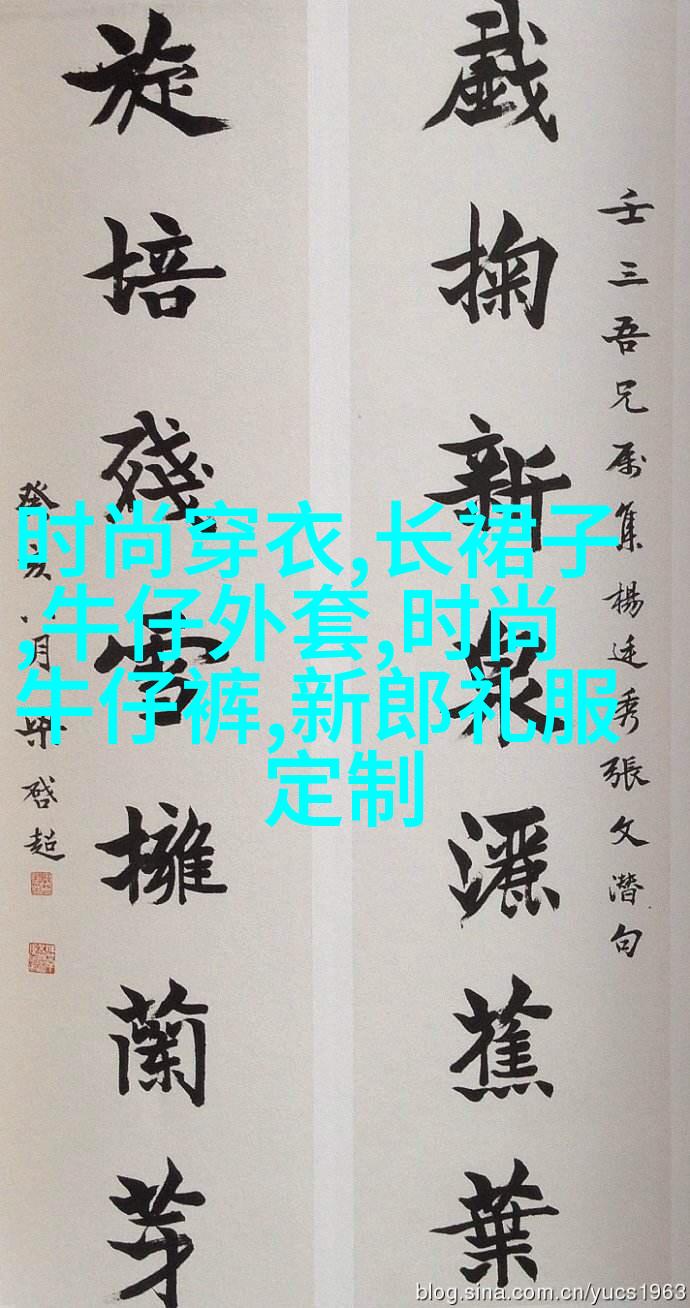 壬三吾兄属集楊廷秀張文潛句
戲掬新泉灑蕉葉
旋培殘雪擁蘭芽
癸亥八月梁啓超
时尚穿衣,长裙子
,牛仔外套,时尚
牛仔裤,新郎礼服
定制
blog.sina.com.cn/yucs1963